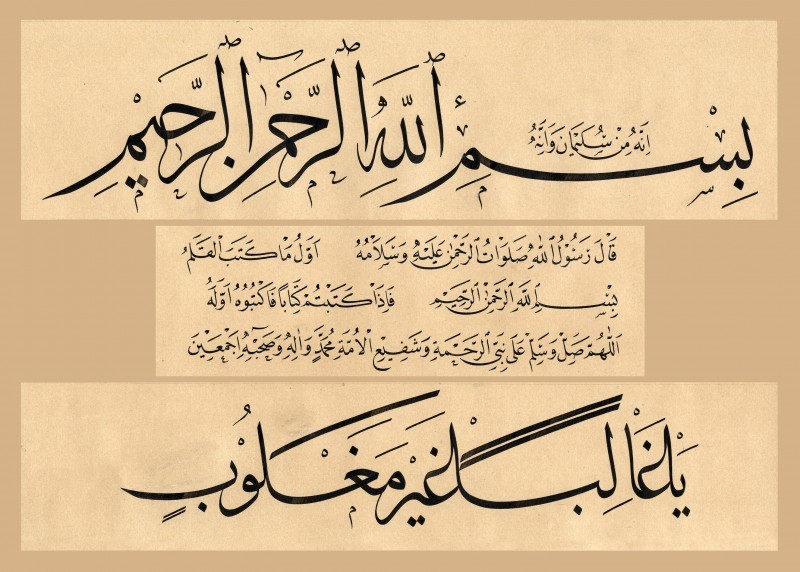 اِنَّهُ مِنْ سُلَيْمَانَ وَاِنَّهُ
بِسْمِ ٱللّٰهِ ٱلرَّحْمٰنِ ٱلرَّحِيْمِ
قَالَ رَسُوْلُ اللهِ صَلَوَاتُ الرَّحْمٰنِ عَلَيْهِ وَسَلَامُهُ اَوَّلُ مَا كَتَبَ الْقَلَمُ
بِسْمِ اللهِ الرَّحْمٰنِ الرَّحِيْمِ فَاِذَا كَتَبْتُمْ كِتَابًا فَاكْتُبُوْهُ اَوَّلَهُ
اَللّٰهُمَّ صَلِّ وَسَلِّمْ عَلٰى نَبِيِّ الرَّحْمَةِ وَشَفِيْعِ الْاُمَّةِ مُحَمَّدٍ وَاٰلِهِ وَصَحْبِهِ اَجْمَعِيْنَ
يَا غَالِبًا غَيْرَ مَغْلُوْبٍ